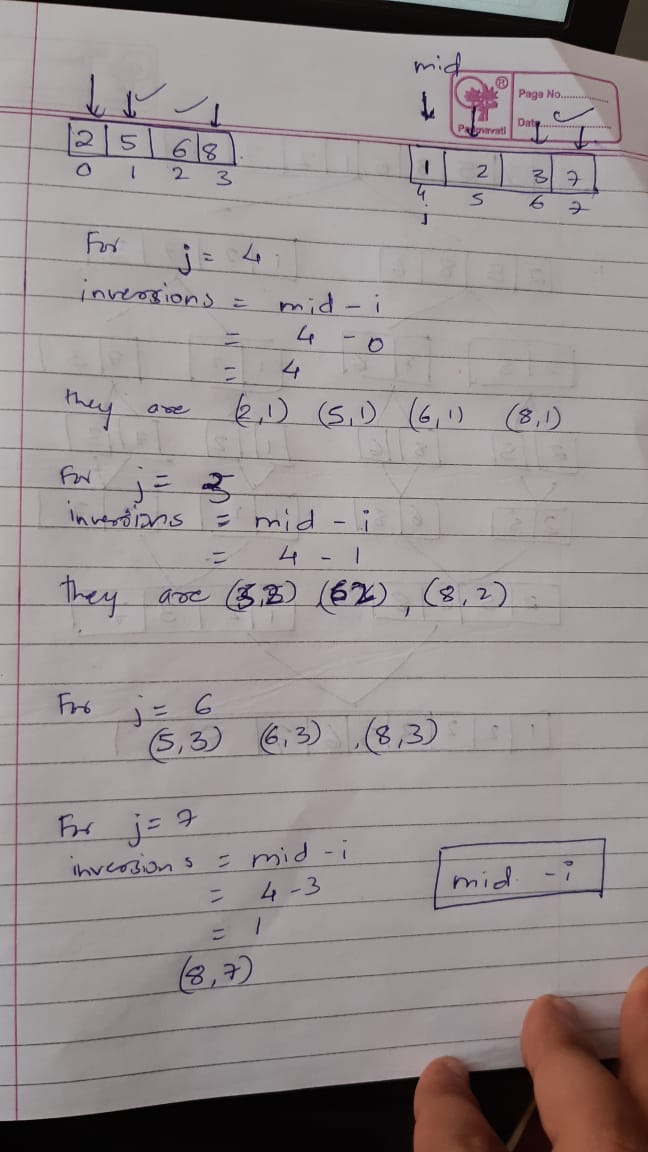 mid
Page No.
Date
Padmavati
2 5 6 8
0 1 2 3
1 2 3 7
4 5 6 7
j
For j = 4
inversions = mid - i
= 4 - 0
= 4
they are (2,1) (5,1) (6,1) (8,1)
For j = 5
inversions = mid - i
= 4 - 1
they are (5,2) (6,2), (8,2)
For j = 6
(5,3) (6,3), (8,3)
For j = 7
inversions = mid - i
= 4 - 3
= 1
mid - i
(8,7)